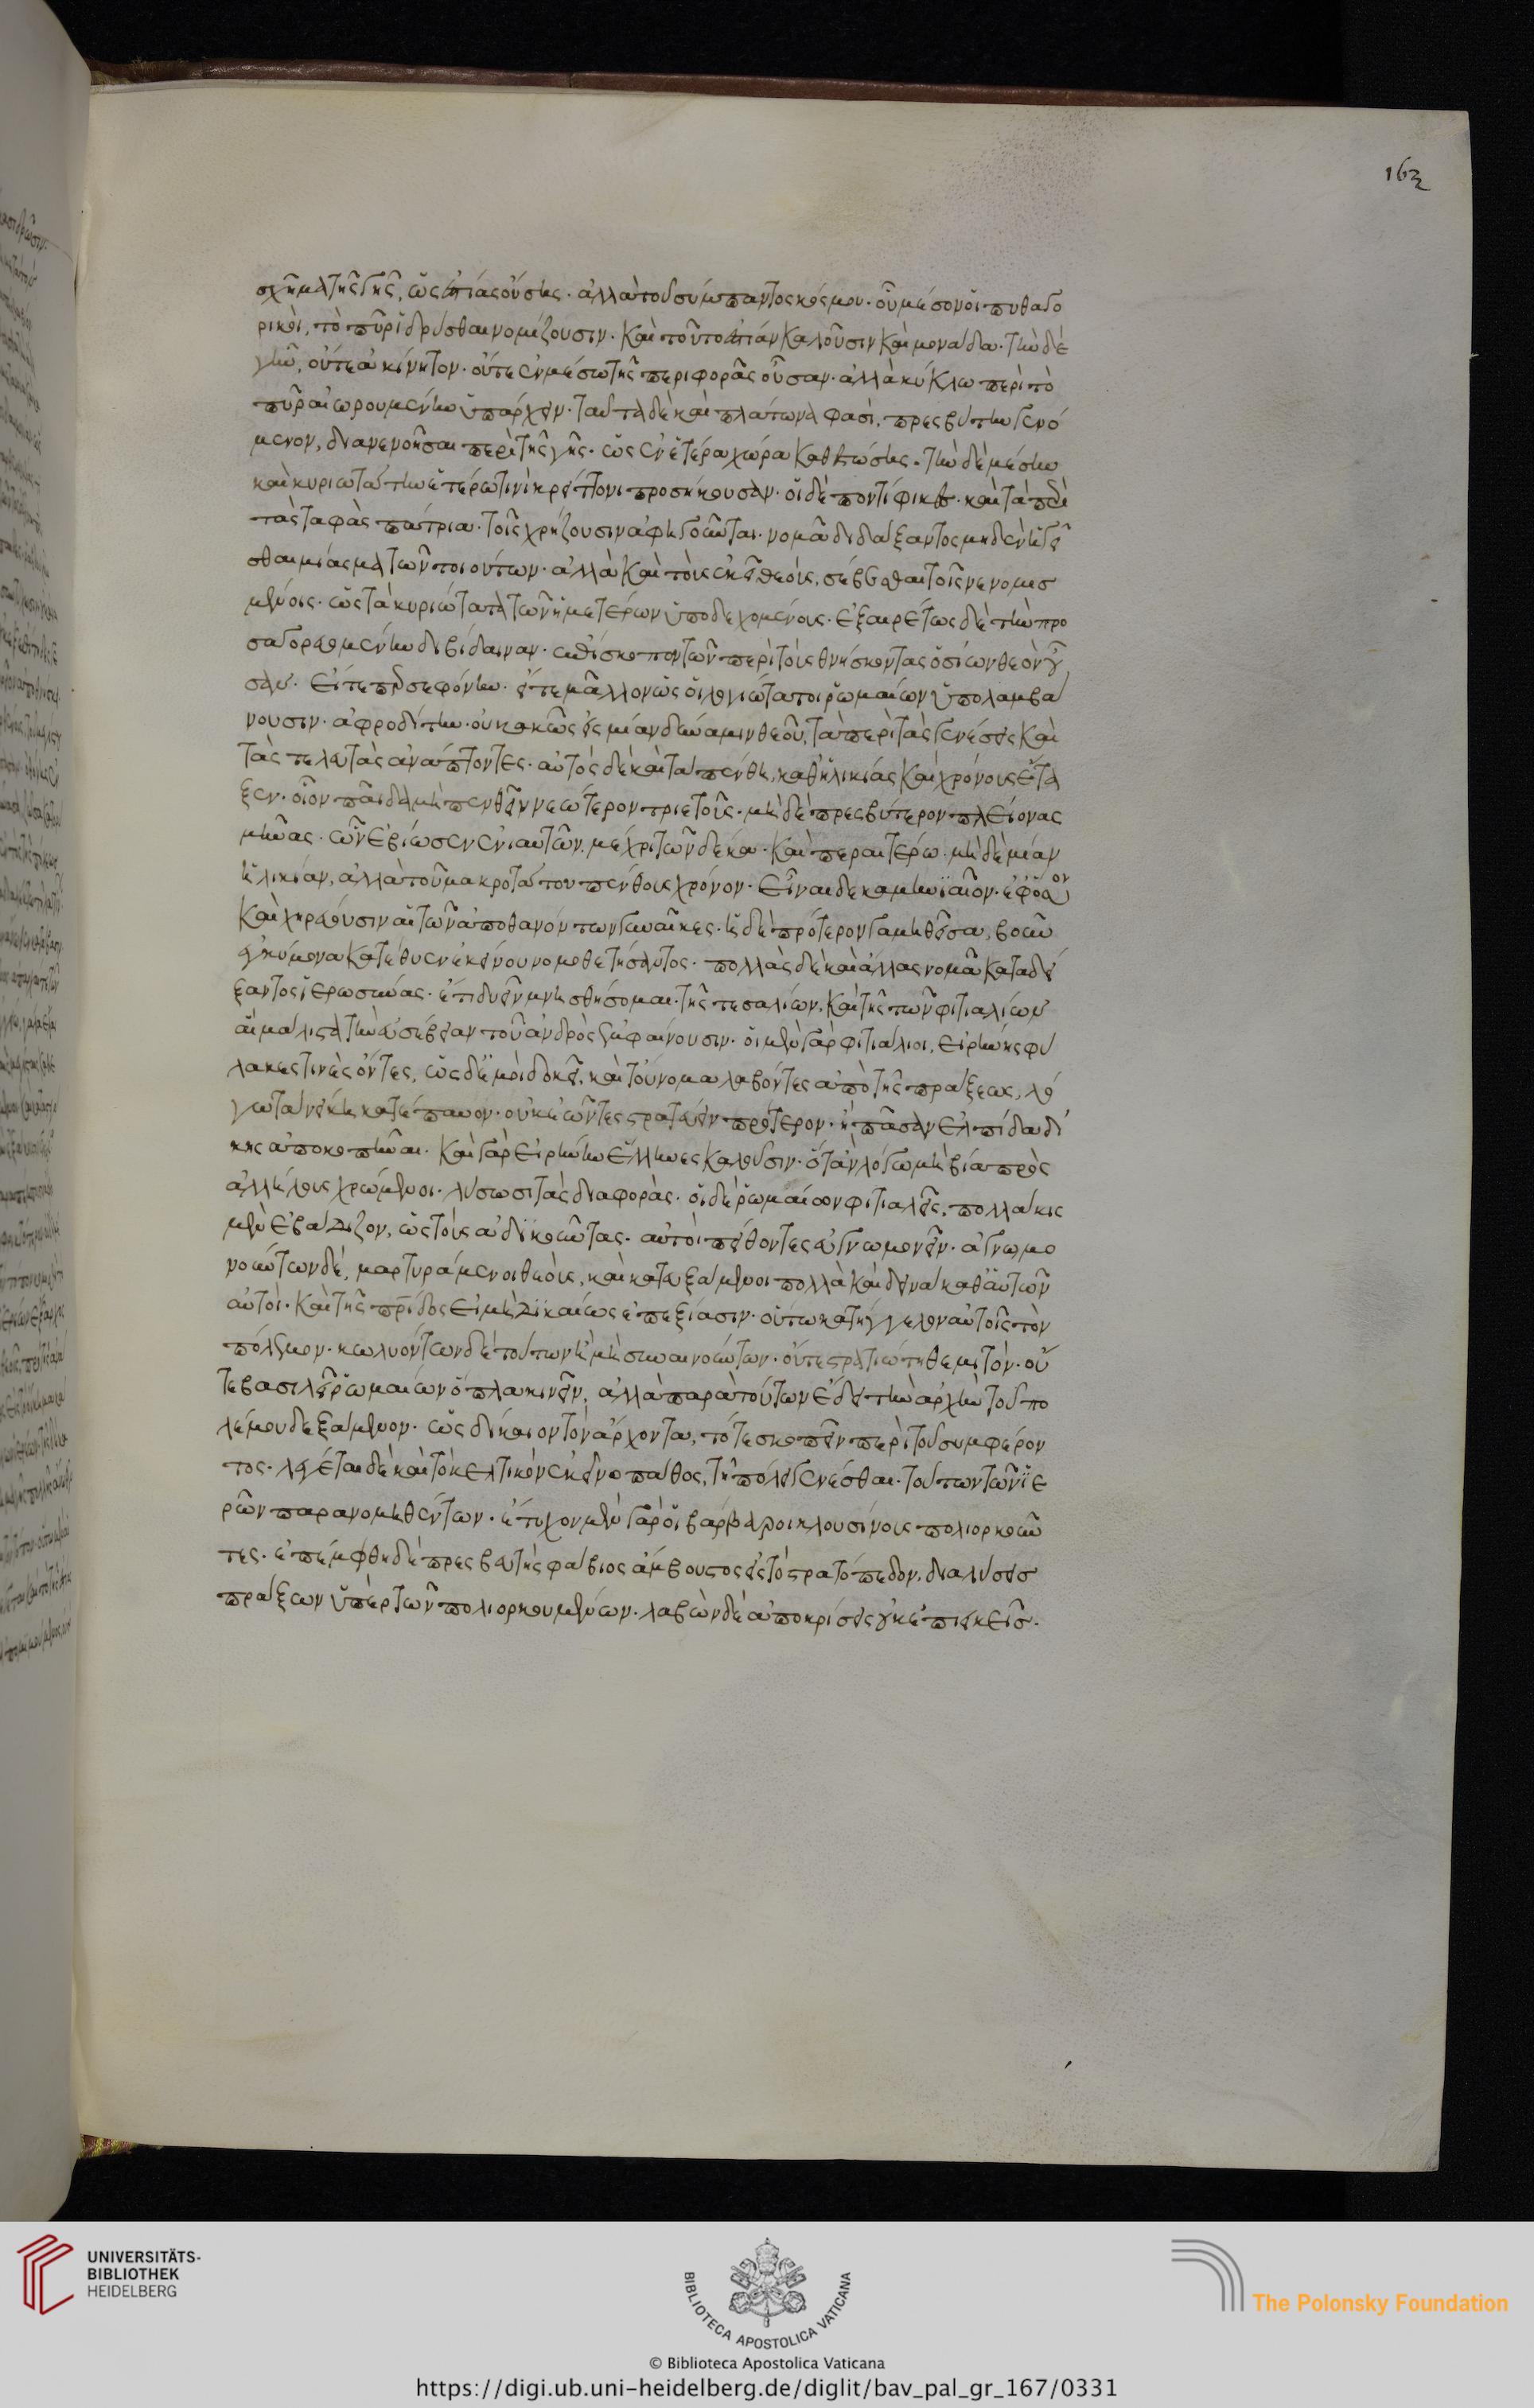 163
σχῆμα τῆς γῆς, ὡς ἑστίας οὔσης. ἀλλὰ τοῦ σύμπαντος κόσμου. οὗ μέσον οἱ πυθαγο
ρικοὶ, τὸ πῦρ ἱδρύσθαι νομίζουσιν. καὶ τοῦτο ἑστίαν καλοῦσιν καὶ μονάδα. τὴν δὲ
γῆν, οὔτε ἀκίνητον. οὔτε ἐν μέσω τῆς περιφορᾶς οὖσαν. ἀλλὰ κύκλω περὶ τὸ
πῦρ αἰωρουμένην ὑπάρχειν. ταῦτα δὲ καὶ πλάτωνα φασὶ, πρεσβύτην γενό
μενον, διανενοῆσαι περὶ τῆς γῆς. ὡς ἐν ἑτέρα χώρα καθεστώσης. τὴν δὲ μέσην
καὶ κυριωτάτην ἑτέρω τινὶ κρείττονι προσήκουσαν. οἱ δὲ ποντίφικες. καὶ τὰ περὶ
τὰς ταφὰς πάτρια. τοῖς χρήζουσιν ἀφηγοῦνται. νομᾶ διδάξαντος μηδὲν ἡγεῖ
σθαι μίασμα τῶν τοιούτων. ἀλλὰ καὶ τοὺς ἐκεῖ θεοὺς, σέβεσθαι τοῖς νενομισ
μένοις. ὡς τὰ κυριώτατα τῶν ἡμετέρων ὑποδεχομένους. ἐξαιρέτως δὲ τὴν προ
σαγορευομένην λιβίτιναν. ἐπίσκοπον τῶν περὶ τοὺς θνήσκοντας ὁσίων θεὸν οὖ
σαν. εἴτε περσεφόνην. εἴτε μᾶλλον ὡς οἱ λογιώτατοι ῥωμαίων ὑπολαμβά
νουσιν. ἀφροδίτην. οὐ κακῶς εἰς μίαν δύναμιν θεοῦ, τὰ περὶ τὰς γενέσεις καὶ
τὰς τελευτὰς ἀνάπτοντες. αὐτὸς δὲ καὶ τὰ πένθη, καθ' ἡλικίας καὶ χρόνους ἔτα
ξεν. οἷον παῖδα μὴ πενθεῖν νεώτερον τριετοῦς. μὴ δὲ πρεσβύτερον πλείονας
μῆνας. ὧν ἐβίωσεν ἐνιαυτῶν. μέχρι τῶν δέκα. καὶ περαιτέρω. μὴ δὲ μίαν
ἡλικίαν, ἀλλὰ τοῦ μακροτάτου πένθους χρόνον. εἶναι δεκαμηνιαῖον. ἐφ' ὅσον
καὶ χηρεύουσιν αἱ τῶν ἀποθανόντων γυναῖκες. ἡ δὲ πρότερον γαμηθεῖσα, βοῦν
ἐγκύμονα κατέθυεν ἐκείνου νομοθετήσαντος. πολλὰς δὲ καὶ ἄλλας νομᾶ καταδεί
ξαντος ἱερωσύνας. ἔτι δυεῖν μνησθήσομαι. τῆς τε σαλίων. καὶ τῆς τῶν φιτιαλίων
αἳ μάλιστα τὴν εὐσέβειαν τοῦ ἀνδρὸς ἐμφαίνουσιν. οἱ μὲν γὰρ φιτιάλιοι, εἰρήνης φύ
λακες τινὲς ὄντες, ὡς δέ μοι δοκεῖ, καὶ τοὔνομα λαβόντες ἀπὸ τῆς πράξεως, λό
γω τὰ νείκη κατέπαυον. οὐκ ἐῶντες στρατεύειν πρότερον. ἢ πᾶσαν ἐλπίδα δί
κης ἀποκοπῆναι. καὶ γὰρ εἰρήνην ἕλληνες καλοῦσιν. ὅταν λόγω μὴ βία πρὸς
ἀλλήλους χρώμενοι. λύσωσι τὰς διαφοράς. οἱ δὲ ῥωμαίων φιτιαλεῖς, πολλάκις
μὲν ἐβάδιζον, ὡς τοὺς ἀδικοῦντας. αὐτοὶ πείθοντες εὐγνωμονεῖν. ἀγνωμο
νούντων δὲ, μαρτυράμενοι θεοὺς, καὶ κατευξάμενοι πολλὰ καὶ δεινὰ καθ' ἑαυτῶν
αὐτοὶ. καὶ τῆς πρίδος εἰ μὴ δικαίως ἐπεξίασιν. οὕτω κατήγγελον αὐτοῖς τὸν
πόλεμον. κωλυόντων δὲ τούτων ἢ μὴ συναινούντων. οὔτε στρατιώτη θεμιτὸν. οὔ
τε βασιλεῖ ῥωμαίων ὅπλα κινεῖν, ἀλλὰ παρὰ τούτων ἔδει τὴν ἀρχὴν τοῦ πο
λέμου δεξάμενον. ὡς δίκαιον τὸν ἄρχοντα, τότε σκοπεῖν περὶ τοῦ συμφέρον
τος. λέγεται δὲ καὶ τὸ κελτικὸν ἐκεῖνο πάθος, τῇ πόλει γενέσθαι. τούτων τῶν ἱε
ρῶν παρανομηθέντων. ἔτυχον μὲν γὰρ οἱ βάρβαροι κλουσίνους πολιορκοῦν
τες. ἐπέμφθη δὲ πρεσβευτὴς φάβιος ἄμβουστος εἰς τὸ στρατόπεδον, διαλύσεις
πράξων ὑπὲρ τῶν πολιορκουμένων. λαβὼν δὲ ἀποκρίσεις οὐκ ἐπιεικεῖς.
UNIVERSITÄTS-
BIBLIOTHEK
HEIDELBERG
BIBLIOTECA APOSTOLICA VATICANA
The Polonsky Foundation
© Biblioteca Apostolica Vaticana
https://digi.ub.uni-heidelberg.de/diglit/bav_pal_gr_167/0331